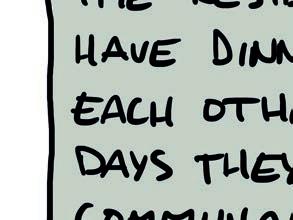 THE RESID
HAVE DINN
EACH OTH
DAYS THEY
COMMUNA